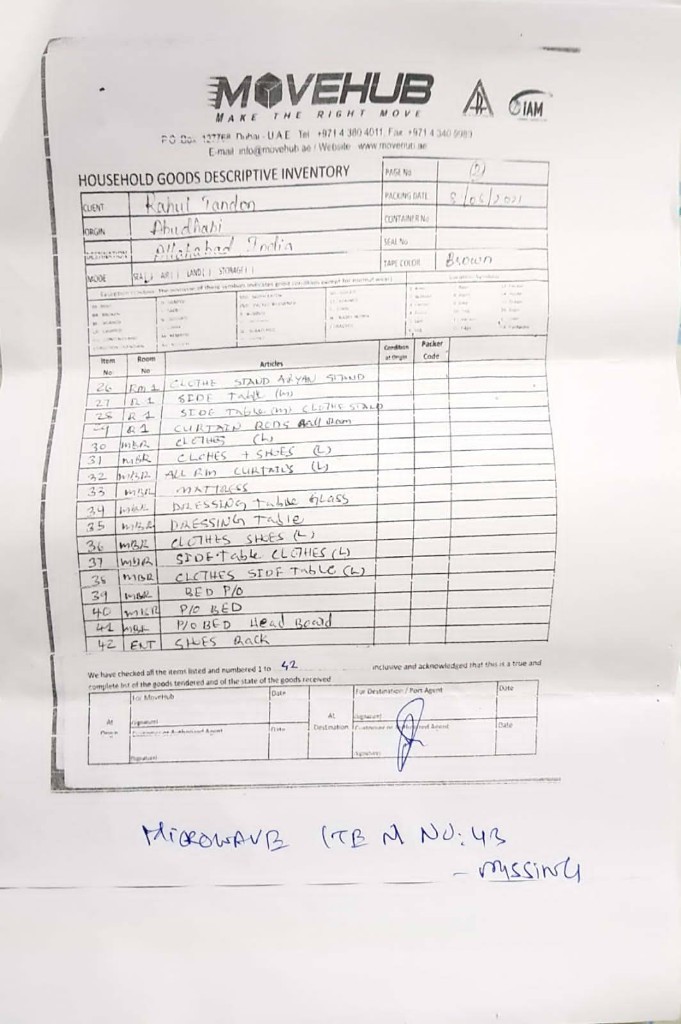 MOVEHUB
MAKE THE RIGHT MOVE
IAM
P.O. Box 127768 Dubai - U.A.E Tel +971 4 380 4011, Fax +971 4 340
E-mail info@movehub.ae / Website www.movehub.ae
HOUSEHOLD GOODS DESCRIPTIVE INVENTORY
PAGE No (2)
CLIENT Rahul Tandon
PACKING DATE 8/06/2021
ORGIN Abudhabi
CONTAINER No
DESTINATION Allahabad India
SEAL No
MODE SEA AIR LAND STORAGE
TAPE COLOR Brown
Item No Room No Articles Condition at Origin Packer Code
26 Rm 1 CLOTHE STAND STAND
27 R 1 SIDE Table (M)
28 R 1 SIDE Table (M) CLOTHE STAND
29 R1 CURTAIN RODS All Room
30 MBR CLOTHES (L)
31 MBR CLOTHES + SHOES (L)
32 MBR ALL RM CURTAINS (L)
33 MBR MATTRESS
34 MBR DRESSING Table GLASS
35 MBR DRESSING Table
36 MBR CLOTHES SHOES (L)
37 MBR SIDE Table CLOTHES (L)
38 MBR CLOTHES SIDE Table (L)
39 MBR BED P/O
40 MBR P/O BED
41 MBR P/O BED Head Board
42 ENT SHOES Rack
We have checked all the items listed and numbered 1 to 42 inclusive and acknowledged that this is a true and
complete list of the goods tendered and of the state of the goods received
For MoveHub Date For Destination / Port Agent Date
At (Signature) At (Signature)
Origin Customer or Authorized Agent Date Destination Customer or Authorized Agent Date
(Signature) (Signature)
MICROWAVE ITEM NO: 43
- MISSING